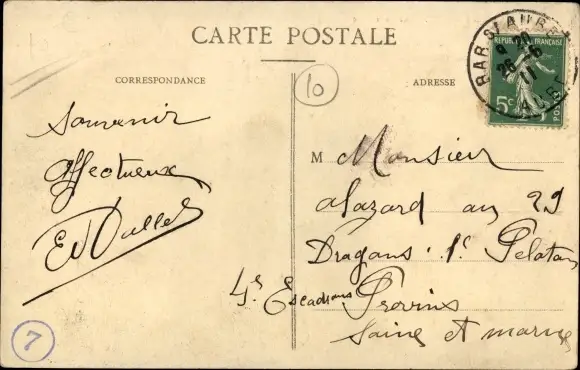 CARTE POSTALE
CORRESPONDANCE
ADRESSE
10
REPUBLIQUE FRANÇAISE
5c
POSTES
BAR S/ AUBE
26
11
AUBE
Souvenir
affectueux
M Monsieur
alazard au 29
Dragons 1e Peloton
4e Escadrons Provins
Seine et marne
7